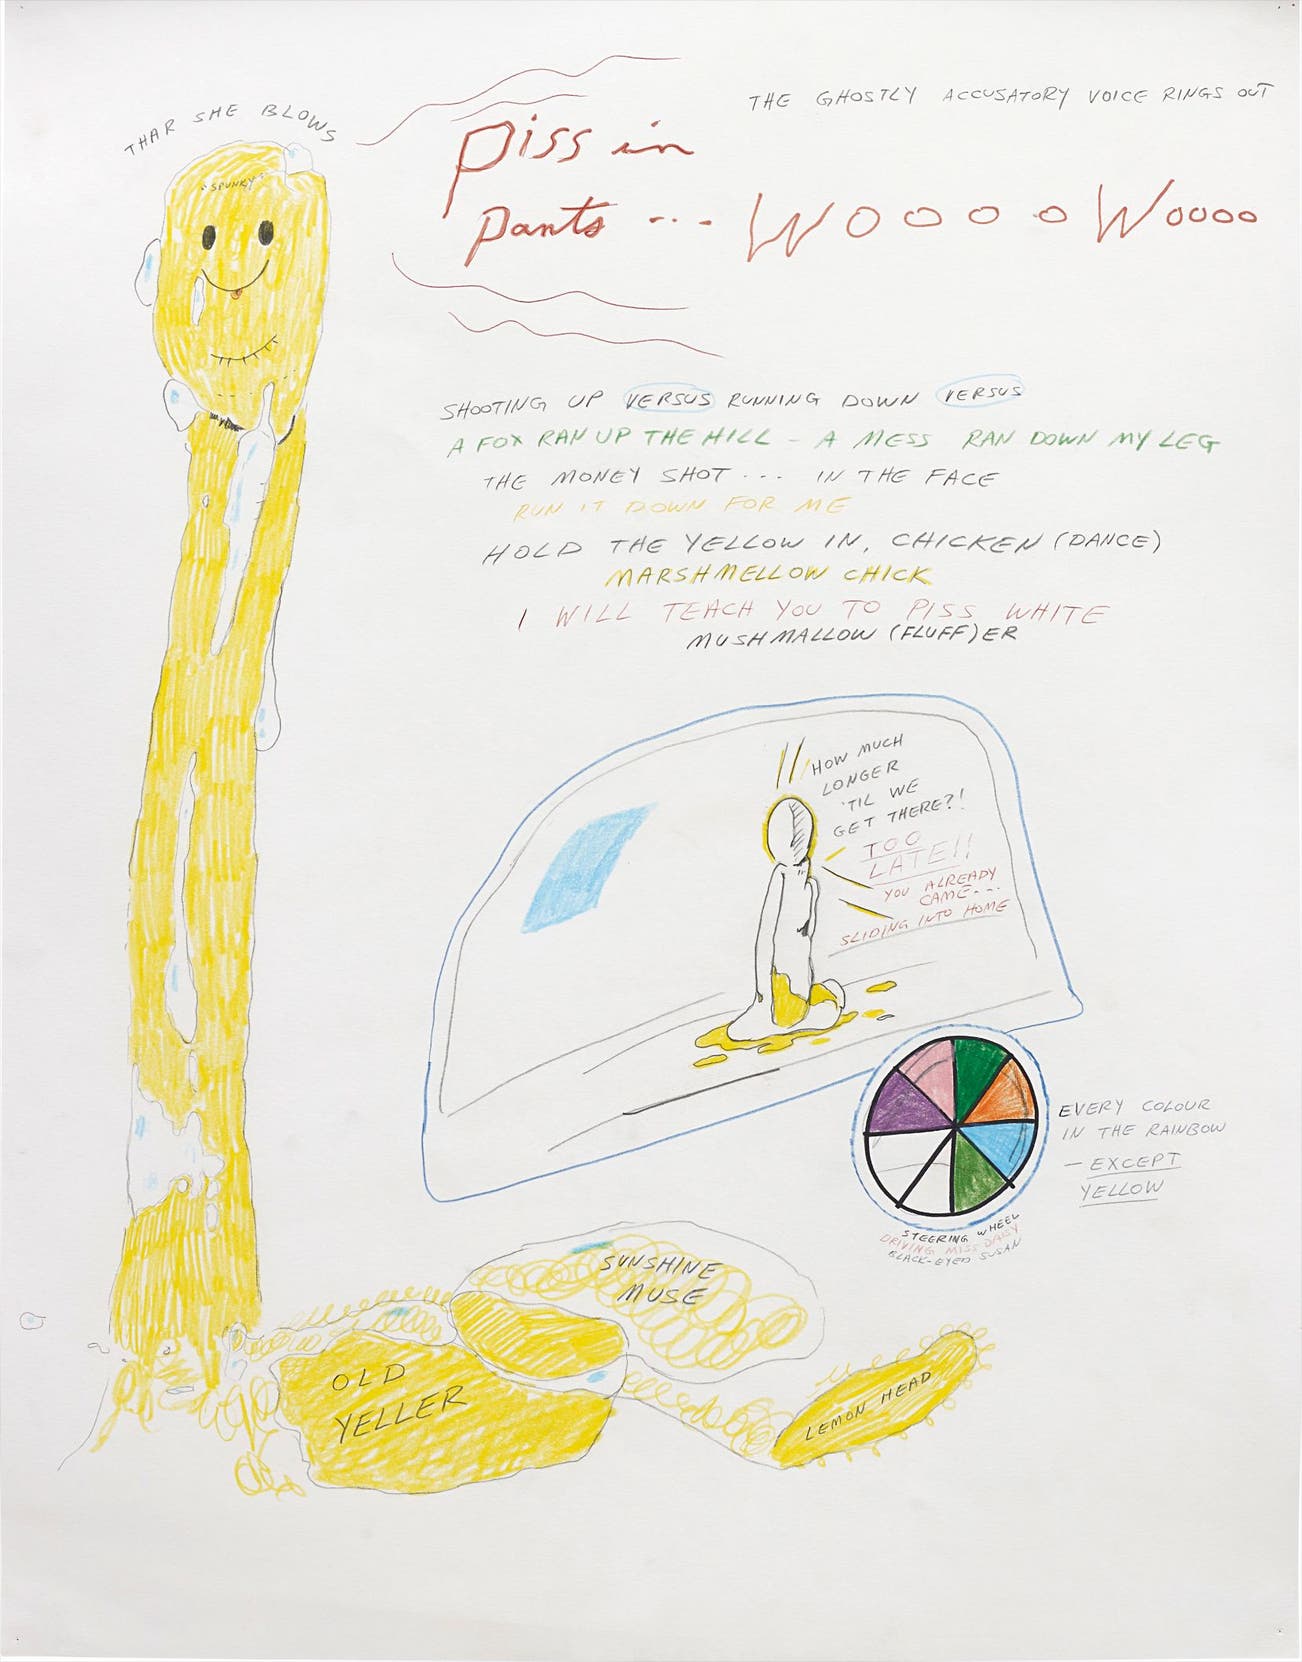 THAR SHE BLOWS
"SPUNKY"
THE GHOSTLY ACCUSATORY VOICE RINGS OUT
Piss in
pants... WOOOOWoooo
SHOOTING UP VERSUS RUNNING DOWN VERSUS
A FOX RAN UP THE HILL - A MESS RAN DOWN MY LEG
THE MONEY SHOT... IN THE FACE
RUN IT DOWN FOR ME
HOLD THE YELLOW IN, CHICKEN (DANCE)
MARSHMELLOW CHICK
I WILL TEACH YOU TO PISS WHITE
MUSHMALLOW (FLUFF)ER
HOW MUCH
LONGER
'TIL WE
GET THERE?!
TOO
LATE!!
YOU ALREADY
CAME...
SLIDING INTO HOME
EVERY COLOUR
IN THE RAINBOW
- EXCEPT
YELLOW
STEERING WHEEL
DRIVING MISS DAISY
BLACK-EYED SUSAN
SUNSHINE
MUSE
OLD
YELLER
LEMON HEAD